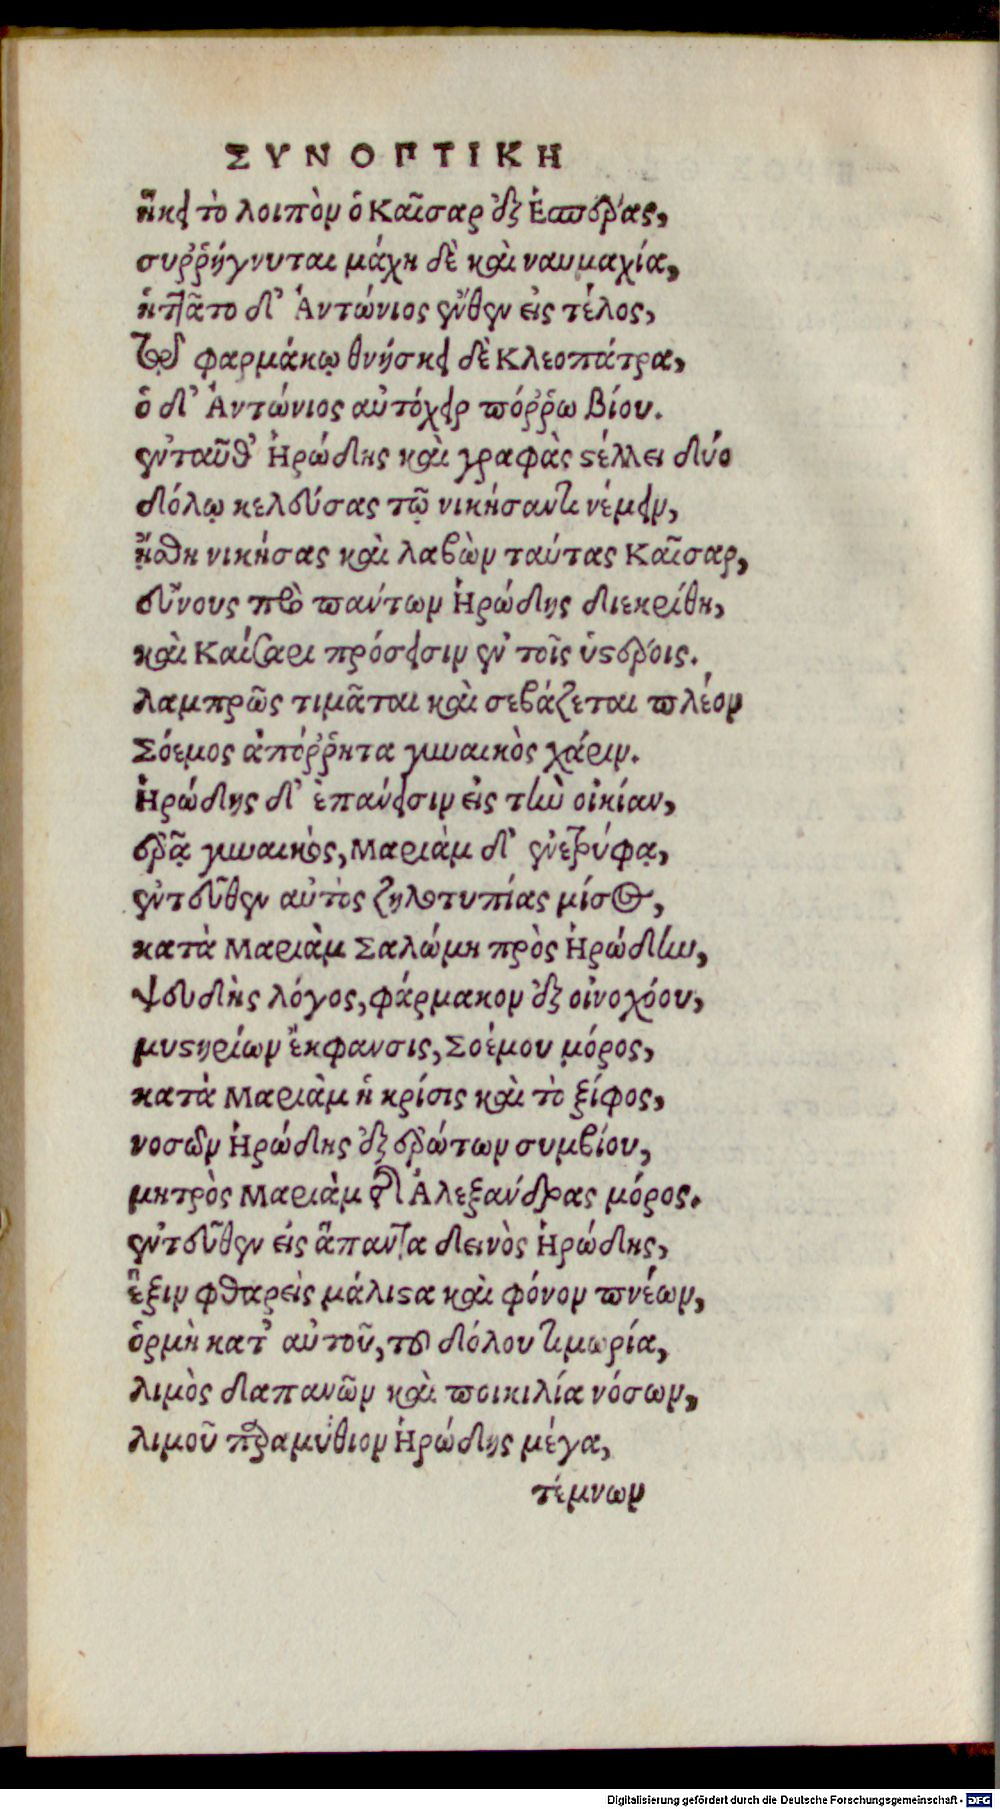 ΣΥΝΟΠΤΙΚΗ
ἥκει τὸ λοιπὸν ὁ Καῖσαρ ἐξ Ἑσπέρας,
συῤῥήγνυται μάχη δὲ καὶ ναυμαχία,
ἡτᾶτο δ᾽ Ἀντώνιος ἔνθεν εἰς τέλος,
τῷ φαρμάκῳ θνήσκει δὲ Κλεοπάτρα,
ὁ δ᾽ Ἀντώνιος αὐτόχειρ πόῤῥω βίου.
ἐνταῦθ᾽ Ἡρώδης καὶ γραφὰς στέλλει δύο
δόλῳ κελεύσας τῷ νικήσαντι νέμειν,
ᾔσθη νικήσας καὶ λαβὼν ταύτας Καῖσαρ,
εὔνους πρὸ πάντων Ἡρώδης διεκρίθη,
καὶ Καίσαρι πρόσεισιν ἐν τοῖς ὑστέροις.
λαμπρῶς τιμᾶται καὶ σεβάζεται πλέον
Σόεμος ἀπόῤῥητα γυναικὸς χάριν.
Ἡρώδης δ᾽ ἐπάνεισιν εἰς τὴν οἰκίαν,
ἐρᾷ γυναικὸς, Μαριὰμ δ᾽ ἐνετρύφα,
ἐντεῦθεν αὐτὸς ζηλοτυπίας μίσος,
κατὰ Μαριὰμ Σαλώμη πρὸς Ἡρώδην,
ψευδὴς λόγος, φάρμακον ἐξ οἰνοχόου,
μυστηρίων ἔκφανσις, Σοέμου μόρος,
κατὰ Μαριὰμ ἡ κρίσις καὶ τὸ ξίφος,
νοσῶν Ἡρώδης ἐξ ἐρώτων συμβίου,
μητρὸς Μαριὰμ τῆς Ἀλεξάνδρας μόρος.
ἐντεῦθεν εἰς ἅπαντα δεινὸς Ἡρώδης,
ἕξιν φθαρεὶς μάλιστα καὶ φόνον πνέων,
ὁρμὴ κατ᾽ αὐτοῦ, τοῦ δόλου τιμωρία,
λιμὸς δαπανῶν καὶ ποικιλία νόσων,
λιμοῦ παραμύθιον Ἡρώδης μέγα,
τέμνων
Digitalisierung gefördert durch die Deutsche Forschungsgemeinschaft - DFG